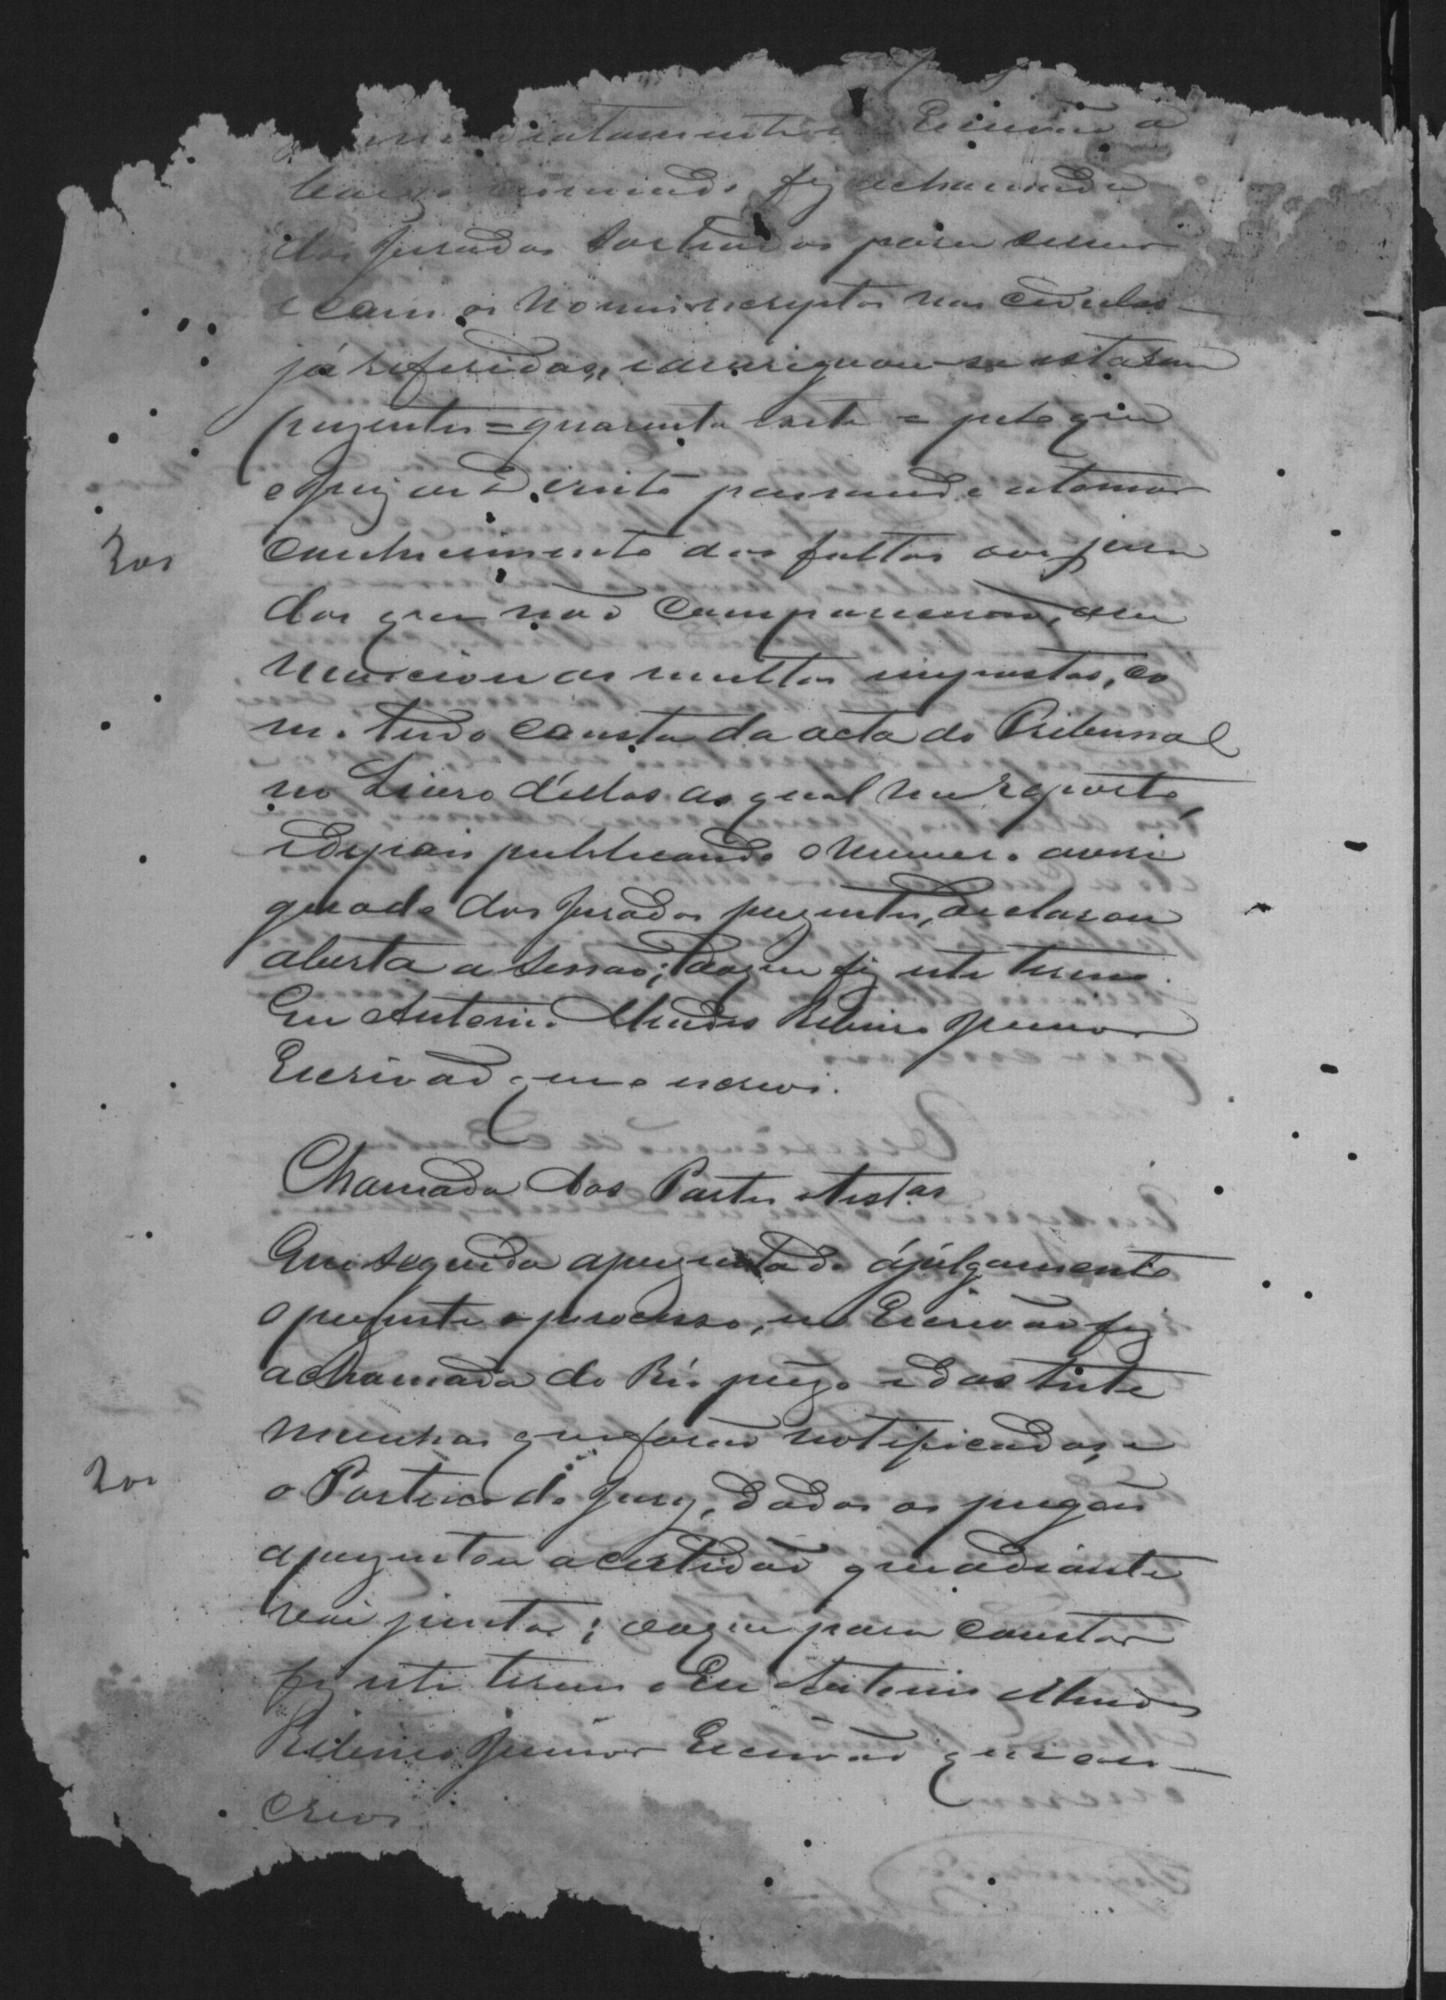 immediatamente Escrivão a
baixo nomeado fiz a chamada
dos Jurados sorteados para
e com os nomes inscriptos nas cedulas
já referidas, e averiguou-se estarem
prezentes = quarenta e sete = pelo que
o juiz de Direito passando a tomar
conhecimento das faltas dos jura
dos que não comparecerão,
as multas impostas, co
mo tudo consta da acta do Tribunal
no Livro d'ellas ao qual me reporto,
e depois publicando o numero averi
guado dos Jurados prezentes, declarou
aberta a sessão; do que fiz este termo.
Eu Antonio Mendes Ribeiro Junior
Escrivão que o escrevi.
Chamada das Partes e Test.as
Em seguida aprezentado á julgamento
o prezente processo, eu Escrivão fiz
a chamada do Réo prezo e das teste
munhas que forão notificadas, e
o Porteiro do Jury, dados os pregões
aprezentou a certidão que adiante
vai junta; do que para constar
fiz este termo. Eu Antonio Mendes
Ribeiro Junior Escrivão que o es-
crevi.
200
200